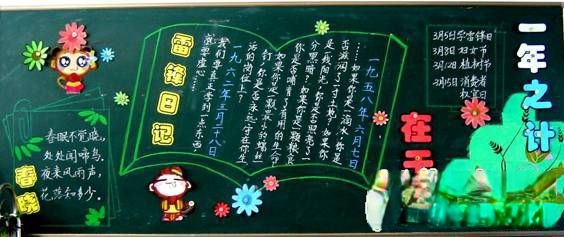 一年之计
在
3月5日学雷锋日
3月8日妇女节
3月12日植树节
3月15日消费者
权宜日
雷锋日记
一九五八年六月七日
……如果你是一滴水,你是
否滋润了一寸土地?如果你
是一线阳光,你是否照亮了一
分黑暗?如果你是一颗粮食
你是否哺育了有用的生命
如果你是一颗最小的螺丝
钉,你是否永远守在你生
活的岗位上?
一九六二年三月二十八日
我们要真正学到一点东西
就要虚心
春晓
春眠不觉晓,
处处闻啼鸟。
夜来风雨声,
花落知多少。